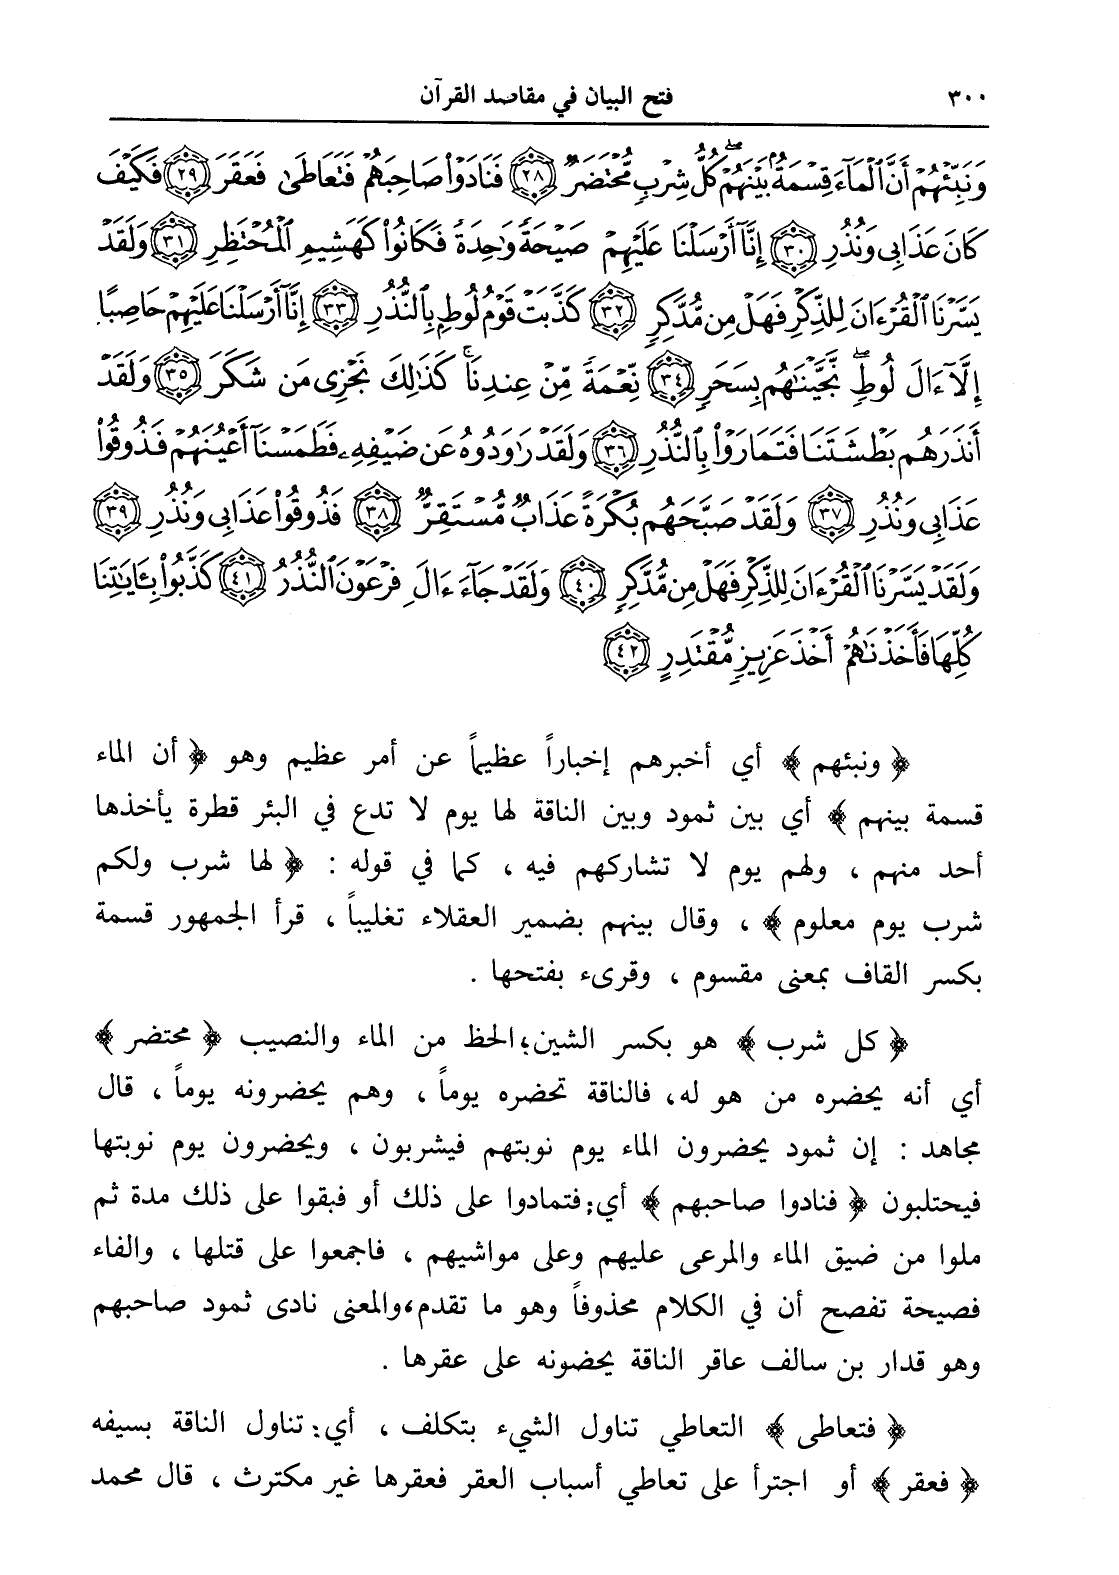 ٣٠٠ فتح البيان في مقاصد القرآن
وَنَبِّئْهُمْ أَنَّ ٱلْمَآءَ قِسْمَةٌۢ بَيْنَهُمْ ۖ كُلُّ شِرْبٍ مُّحْتَضَرٌ ﴿٢٨﴾ فَنَادَوْا۟ صَاحِبَهُمْ فَتَعَاطَىٰ فَعَقَرَ ﴿٢٩﴾ فَكَيْفَ
كَانَ عَذَابِى وَنُذُرِ ﴿٣٠﴾ إِنَّآ أَرْسَلْنَا عَلَيْهِمْ صَيْحَةً وَٰحِدَةً فَكَانُوا۟ كَهَشِيمِ ٱلْمُحْتَظِرِ ﴿٣١﴾ وَلَقَدْ
يَسَّرْنَا ٱلْقُرْءَانَ لِلذِّكْرِ فَهَلْ مِن مُّدَّكِرٍ ﴿٣٢﴾ كَذَّبَتْ قَوْمُ لُوطٍۭ بِٱلنُّذُرِ ﴿٣٣﴾ إِنَّآ أَرْسَلْنَا عَلَيْهِمْ حَاصِبًا
إِلَّآ ءَالَ لُوطٍ ۖ نَّجَّيْنَٰهُم بِسَحَرٍ ﴿٣٤﴾ نِّعْمَةً مِّنْ عِندِنَا ۚ كَذَٰلِكَ نَجْزِى مَن شَكَرَ ﴿٣٥﴾ وَلَقَدْ
أَنذَرَهُم بَطْشَتَنَا فَتَمَارَوْا۟ بِٱلنُّذُرِ ﴿٣٦﴾ وَلَقَدْ رَٰوَدُوهُ عَن ضَيْفِهِۦ فَطَمَسْنَآ أَعْيُنَهُمْ فَذُوقُوا۟
عَذَابِى وَنُذُرِ ﴿٣٧﴾ وَلَقَدْ صَبَّحَهُم بُكْرَةً عَذَابٌ مُّسْتَقِرٌّ ﴿٣٨﴾ فَذُوقُوا۟ عَذَابِى وَنُذُرِ ﴿٣٩﴾
وَلَقَدْ يَسَّرْنَا ٱلْقُرْءَانَ لِلذِّكْرِ فَهَلْ مِن مُّدَّكِرٍ ﴿٤٠﴾ وَلَقَدْ جَآءَ ءَالَ فِرْعَوْنَ ٱلنُّذُرُ ﴿٤١﴾ كَذَّبُوا۟ بِـَٔايَٰتِنَا
كُلِّهَا فَأَخَذْنَٰهُمْ أَخْذَ عَزِيزٍ مُّقْتَدِرٍ ﴿٤٢﴾
﴿ ونبئهم ﴾ أي أخبرهم إخباراً عظيماً عن أمر عظيم وهو ﴿ أن الماء
قسمة بينهم ﴾ أي بين ثمود وبين الناقة لها يوم لا تدع في البئر قطرة يأخذها
أحد منهم ، ولهم يوم لا تشاركهم فيه ، كما في قوله : ﴿ لها شرب ولكم
شرب يوم معلوم ﴾ ، وقال بينهم بضمير العقلاء تغليباً ، قرأ الجمهور قسمة
بكسر القاف بمعنى مقسوم ، وقرىء بفتحها .
﴿ كل شرب ﴾ هو بكسر الشين؛الحظ من الماء والنصيب ﴿ محتضر ﴾
أي أنه يحضره من هو له، فالناقة تحضره يوماً ، وهم يحضرونه يوماً ، قال
مجاهد : إن ثمود يحضرون الماء يوم نوبتهم فيشربون ، ويحضرون يوم نوبتها
فيحتلبون ﴿ فنادوا صاحبهم ﴾ أي:فتمادوا على ذلك أو فبقوا على ذلك مدة ثم
ملوا من ضيق الماء والمرعى عليهم وعلى مواشيهم ، فاجمعوا على قتلها ، والفاء
فصيحة تفصح أن في الكلام محذوفاً وهو ما تقدم،والمعنى نادى ثمود صاحبهم
وهو قدار بن سالف عاقر الناقة يحضونه على عقرها .
﴿ فتعاطى ﴾ التعاطي تناول الشيء بتكلف ، أي:تناول الناقة بسيفه
﴿ فعقر ﴾ أو اجترأ على تعاطي أسباب العقر فعقرها غير مكترث ، قال محمد